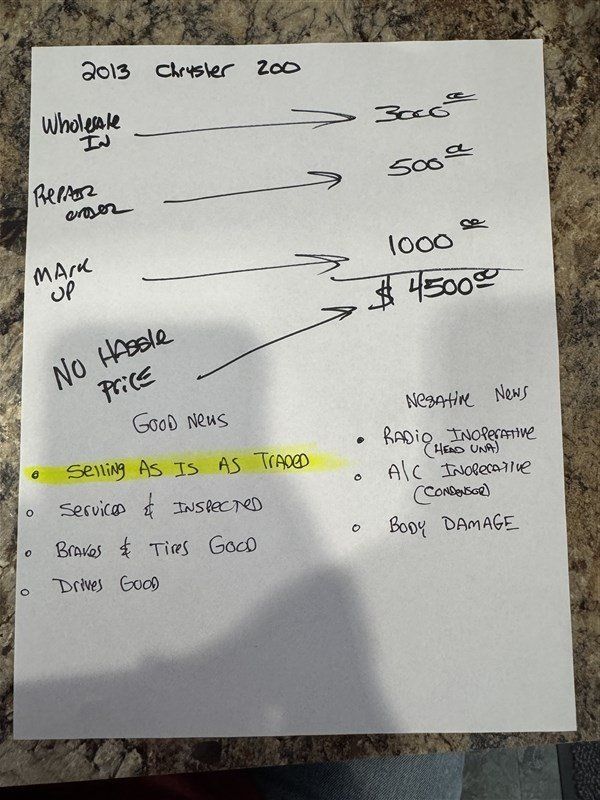 2013 Chrysler 200
Wholesale
IN
3000 00
Repair
order
500 00
Mark
UP
1000 00
$ 4500 00
No Hassle
Price
Good News
Negative News
Selling As Is As Traded
Radio Inoperative
(Head Unit)
Serviced & Inspected
A/C Inoperative
(Condensor)
Brakes & Tires Good
Body Damage
Drives Good